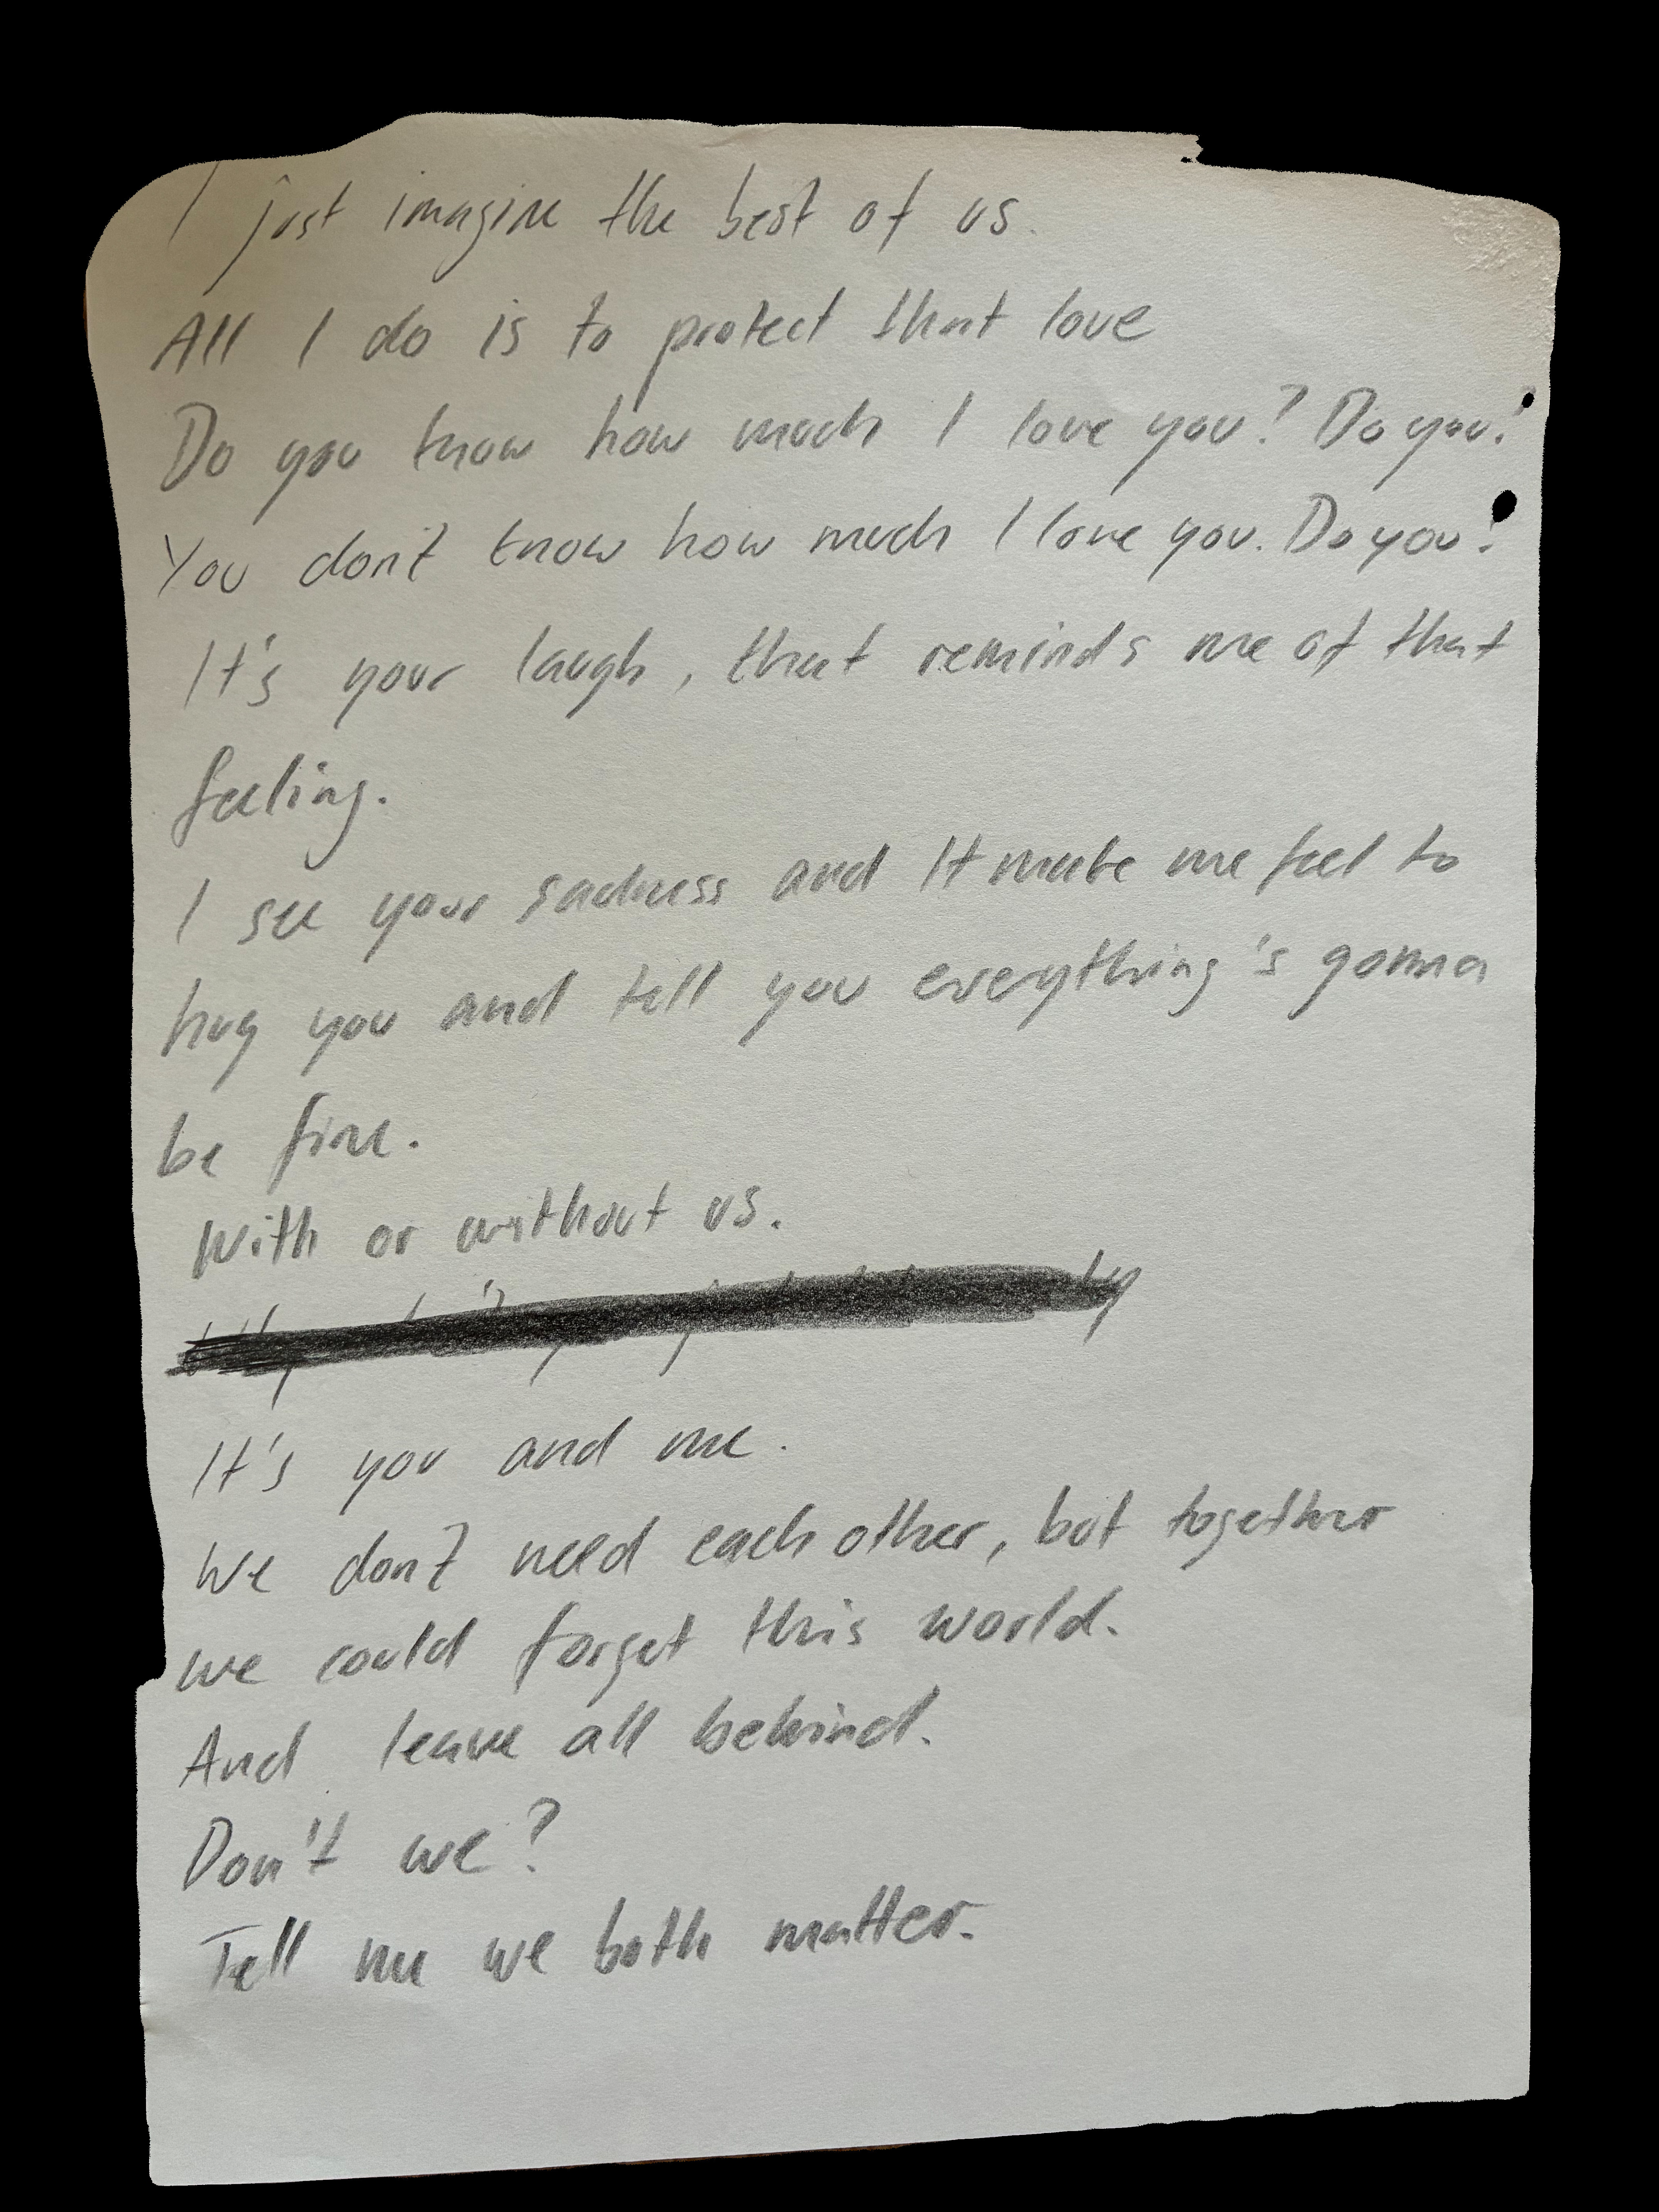 I just imagine the best of us.
All I do is to protect that love
Do you know how much I love you? Do you?
You don't know how much I love you. Do you?
It's your laugh, that reminds me of that
feeling.
I see your sadness and It make me feel to
hug you and tell you everything's gonna
be fine.
With or without us.
It's you and me.
We don't need each other, but together
we could forget this world.
And leave all behind.
Don't we?
Tell me we both matter.